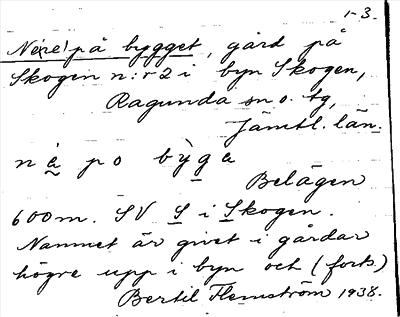 1-3.
Ne(re) på bygget, gård på
Skogen n:r 2 i byn Skogen,
Ragunda sn o. tg,
Jämtl. län.
n é̖ po bỳg̲a
Belägen
600 m. SV S i Skogen.
Namnet är givet i gårdar
högre upp i byn och (forts.)
Bertil Flemström 1938.